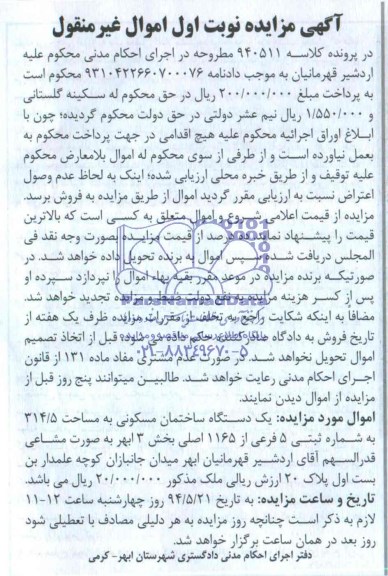 آگهی مزایده نوبت اول اموال غیرمنقول
در پرونده کلاسه ۹۴۰۵۱۱ مطروحه در اجرای احکام مدنی محکوم علیه
اردشیر قهرمانیان به موجب دادنامه ۹۳۱۰۴۲۲۶۶۰۷۰۰۰۷۶ محکوم است
به پرداخت مبلغ ۲۰۰/۰۰۰/۰۰۰ ریال در حق محکوم له سکینه گلستانی
و ۱/۵۵۰/۰۰۰ ریال نیم عشر دولتی در حق دولت محکوم گردیده؛ چون با
ابلاغ اوراق اجرائیه محکوم علیه هیچ اقدامی در جهت پرداخت محکوم به
بعمل نیاورده است و از طرفی از سوی محکوم له اموال بلامعارض محکوم
علیه توقیف و از طریق خبره محلی ارزیابی شده؛ اینک به لحاظ عدم وصول
اعتراض نسبت به ارزیابی مقرر گردید اموال از طریق مزایده به فروش برسد.
مزایده از قیمت اعلامی شروع و اموال متعلق به کسی است که بالاترین
قیمت را پیشنهاد نماید ده درصد از قیمت مزایده بصورت وجه نقد فی
المجلس دریافت شده سپس اموال به برنده تحویل داده خواهد شد. در
صورتیکه برنده مزایده در موعد مقرر بقیه بهاء اموال را نپردازد سپرده او
پس از کسر هزینه مزایده به نفع دولت ضبط و مزایده تجدید خواهد شد.
مضافا به اینکه شکایت راجع به تخلف از مقررات مزایده ظرف یک هفته از
تاریخ فروش به دادگاه صادر کننده حکم داده می شود قبل از اتخاذ تصمیم
اموال تحویل نخواهد شد. در صورت عدم مشتری مفاد ماده ۱۳۱ از قانون
اجرای احکام مدنی رعایت خواهد شد. طالبین میتوانند پنج روز قبل از
مزایده از اموال دیدن نمایند.
اموال مورد مزایده: یک دستگاه ساختمان مسکونی به مساحت ۳۱۴/۵
به شماره ثبتی ۵ فرعی از ۱۱۶۵ اصلی بخش ۳ ابهر به صورت مشاعی
قدرالسهم آقای اردشیر قهرمانیان ابهر میدان جانبازان کوچه علمدار بن
بست اول پلاک ۲۰ ارزش ریالی ملک مذکور ۲۰/۰۰۰/۰۰۰ ریال می باشد.
تاریخ و ساعت مزایده: به تاریخ ۹۴/۵/۲۱ روز چهارشنبه ساعت ۱۲-۱۱
لازم به ذکر است چنانچه روز مزایده به هر دلیلی مصادف با تعطیلی شود
روز بعد در همان ساعت برگزار خواهد شد.
دفتر اجرای احکام مدنی دادگستری شهرستان ابهر - کرمی
۰۲۱-۸۸۳۴۹۶۷۰-۵